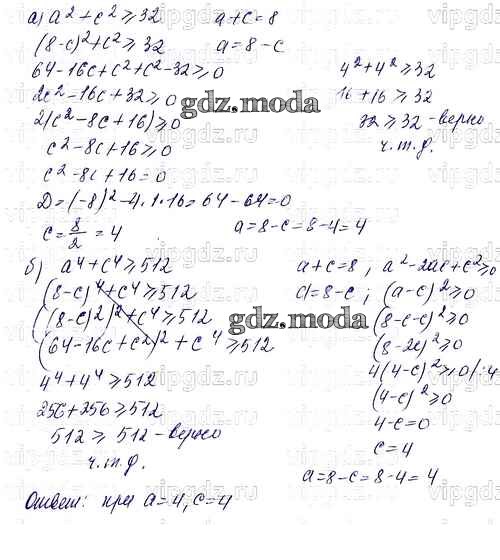 а) a²+c² ≥ 32   a+c=8
(8-c)²+c² ≥ 32   a=8-c
64-16c+c²+c²-32 ≥ 0   4²+4² ≥ 32
2c²-16c+32 ≥ 0   16+16 ≥ 32
gdz.moda
2(c²-8c+16) ≥ 0   32 ≥ 32 - верно
c²-8c+16 ≥ 0   ч.т.д.
c²-8c+16=0
D=(-8)²-4·1·16=64-64=0
c=8/2=4   a=8-c=8-4=4
б) a⁴+c⁴ ≥ 512   a+c=8, a²-2ac+c² ≥ 0
(8-c)⁴+c⁴ ≥ 512   a=8-c; (a-c)² ≥ 0
((8-c)²)²+c⁴ ≥ 512   (8-c-c)² ≥ 0
gdz.moda
(64-16c+c²)²+c⁴ ≥ 512   (8-2c)² ≥ 0
4⁴+4⁴ ≥ 512   4(4-c)² ≥ 0 |:4
256+256 ≥ 512   (4-c)² ≥ 0
512 ≥ 512 - верно   4-c=0
ч.т.д.   c=4
a=8-c=8-4=4
Ответ: при a=4, c=4
vipgdz.ru